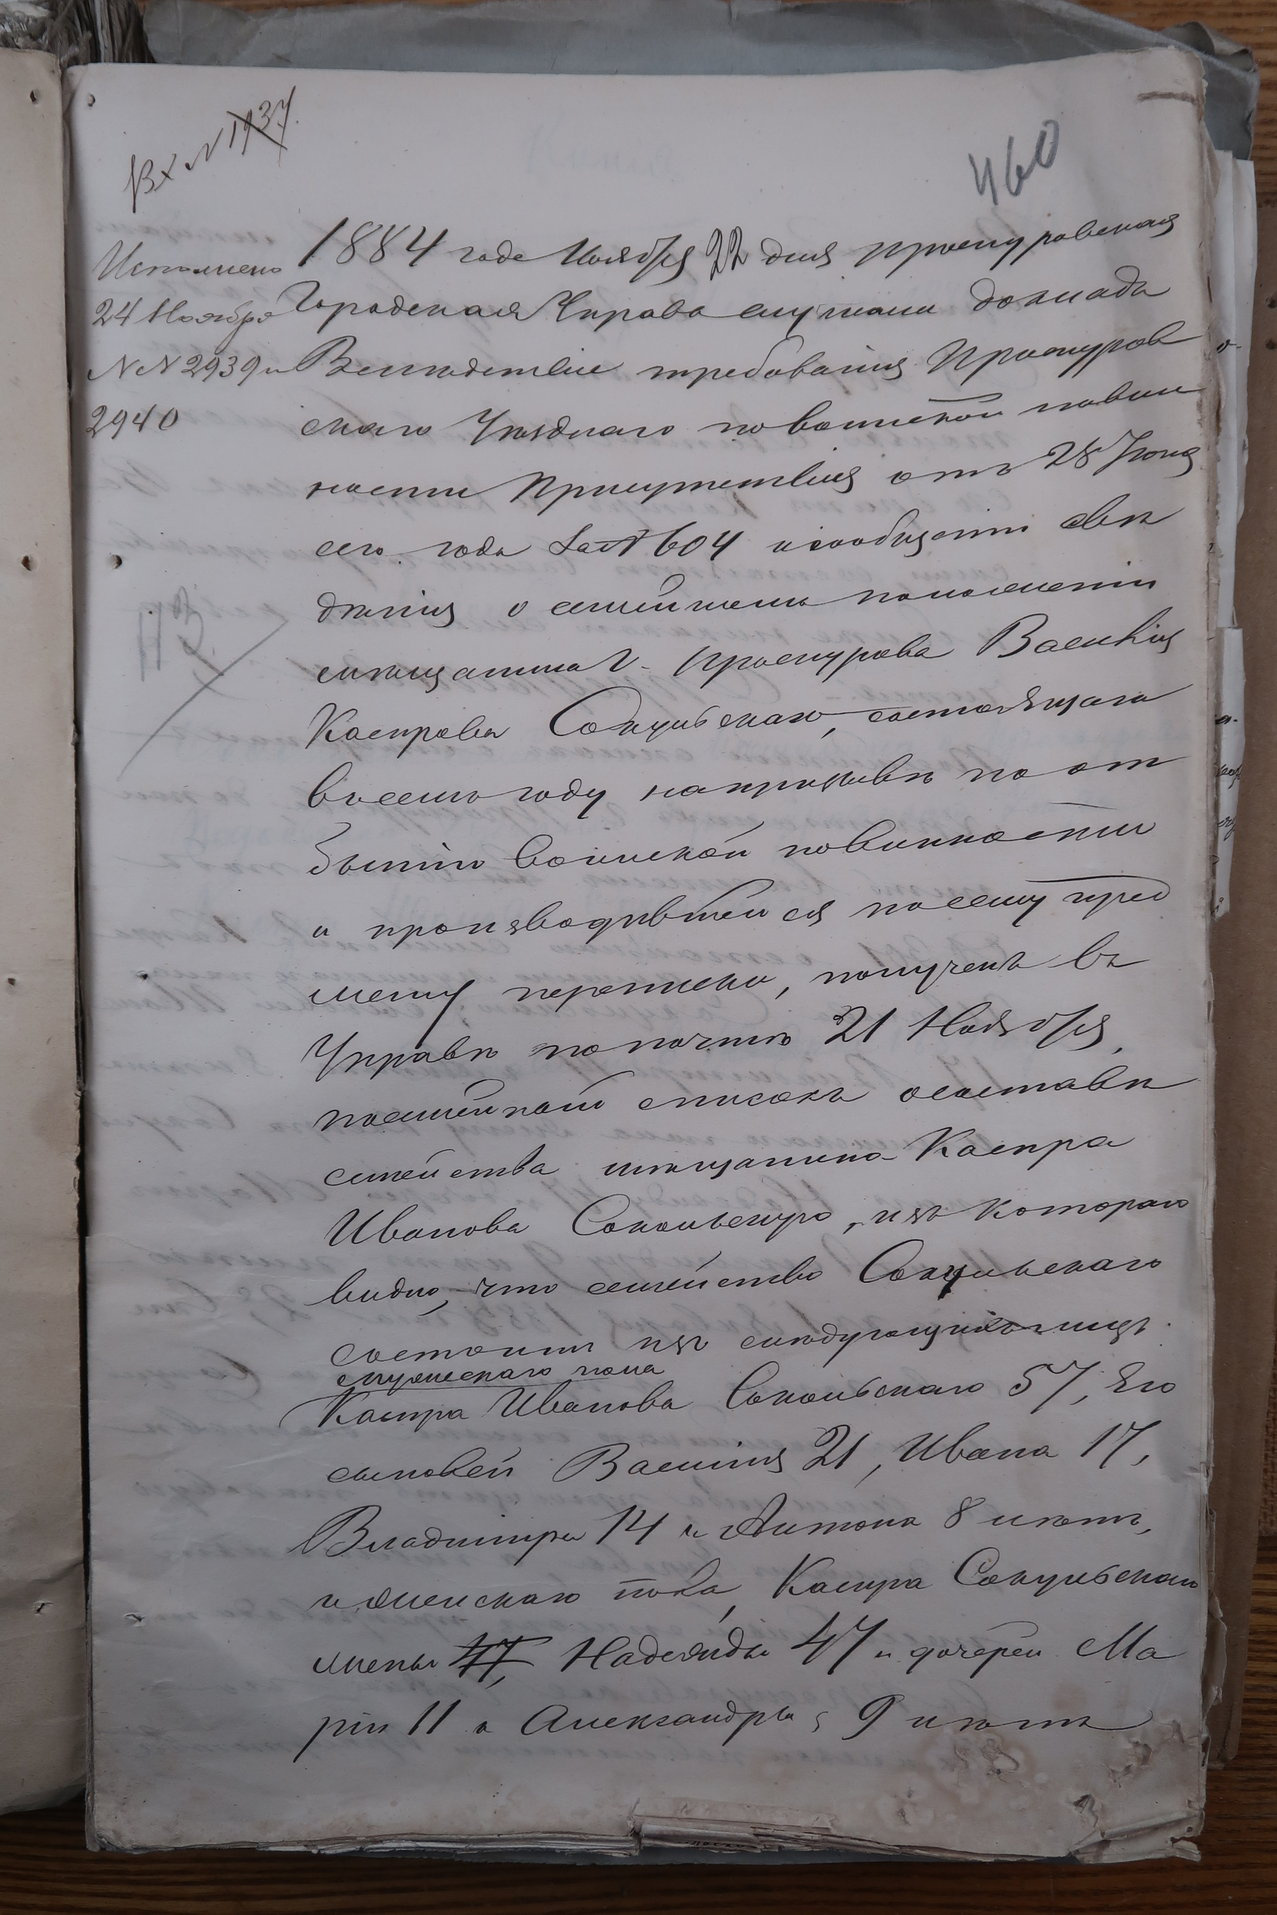 Вх N 1937.
460
Исполнено
24 Ноября
NN 2939 и
2940
113
1884 года Ноября 22 дня Проскуровская
Городская Управа слушали докладъ
Вслѣдствіе требованія Проскуров
скаго Уѣзднаго по воинской повин
ности Присутствія отъ 28 Іюня
сего года за N 604 и сообщеніи свѣ
дѣнія о семейномъ положеніи
мѣщанина г. Проскурова Василія
Каспрова Сокульскаго, состоящаго
въ семъ году на призывѣ по от
бытію воинской повинности
и производившейся по сему пред
мету переписки, полученъ въ
Управѣ по почтѣ 21 Ноября,
посемейный списокъ о составѣ
семейства мѣщанина Каспра
Иванова Сокольскаго, изъ котораго
видно, что семейство Сокульскаго
состоитъ изъ слѣдующихъ лицъ
мужескаго пола
Каспра Иванова Сокольскаго 57, Его
сыновей Василія 21, Ивана 17,
Владиміра 14 и Антона 8 лѣтъ,
и женскаго пола, Каспра Сокульскаго
жены 47, Надежды 47 и дочерей Ма
ріи 11 и Александры 9 лѣтъ